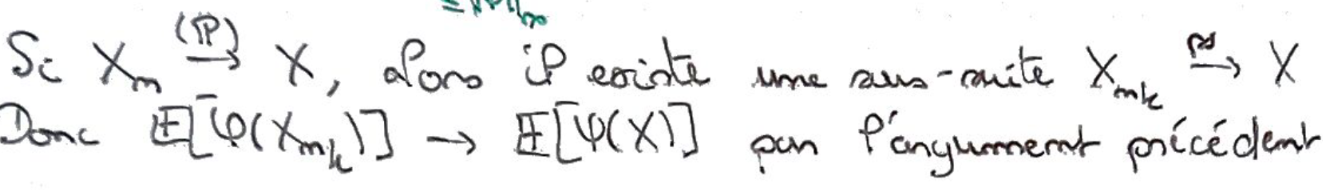 = ||φ||∞
Si Xₙ →^(ℙ) X, alors il existe une sous-suite Xₙₖ →^ps X
Donc 𝔼[φ(Xₙₖ)] → 𝔼[φ(X)] par l'argument précédent